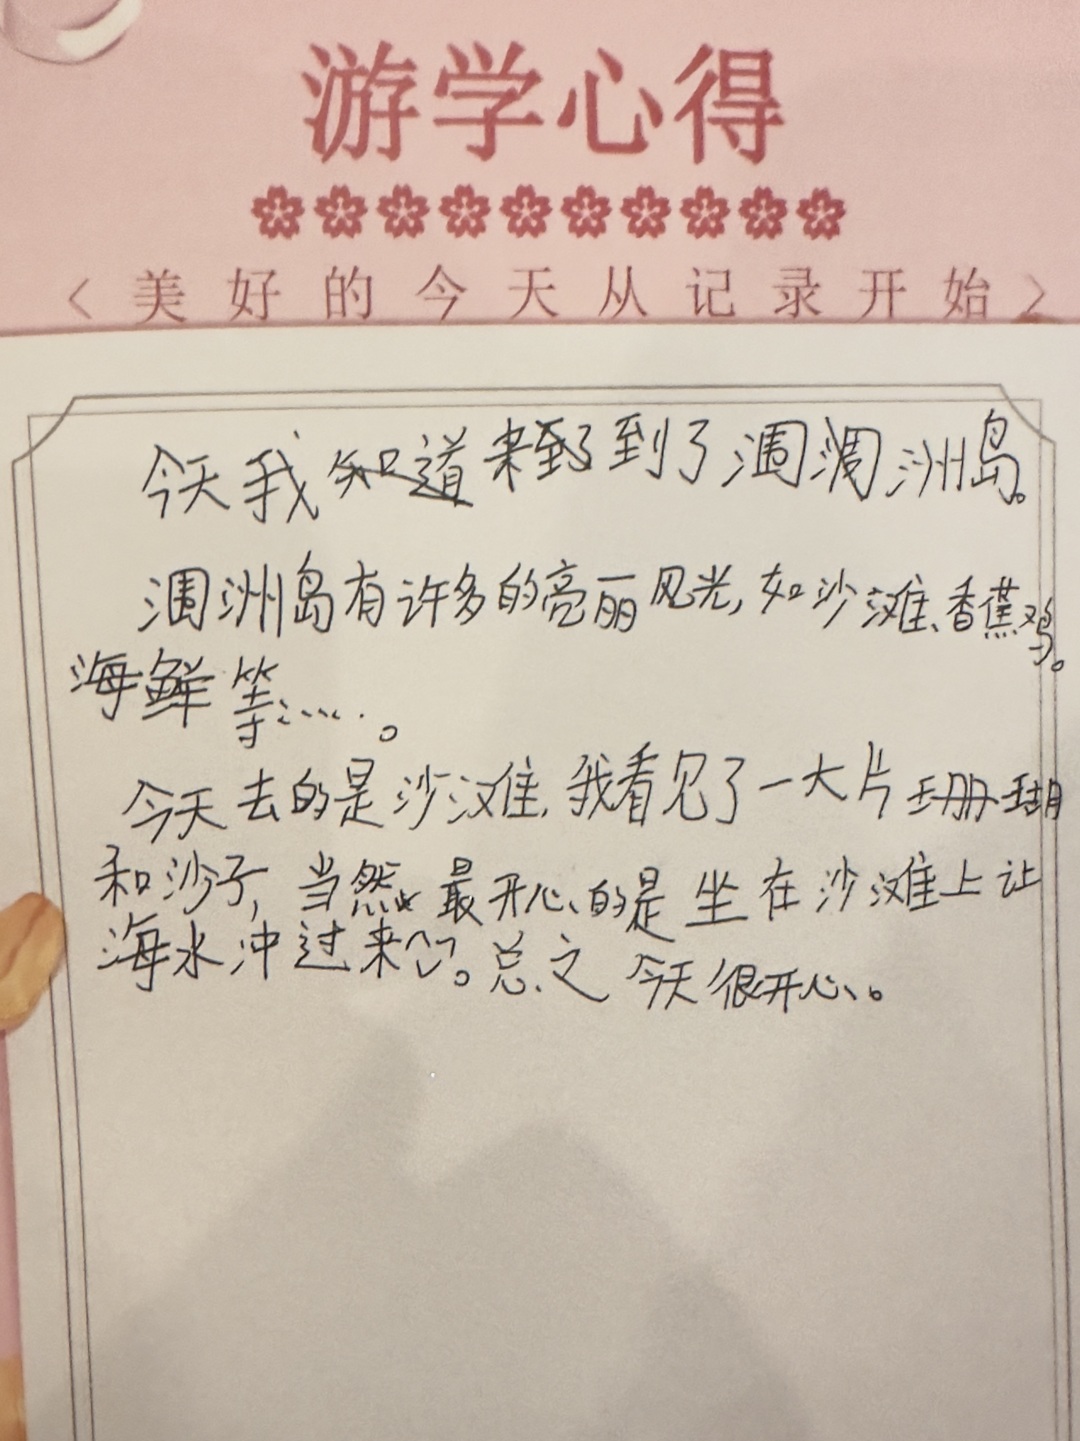 游学心得
<美好的今天从记录开始>
今天我来到了涠洲岛。
涠洲岛有许多的亮丽风光,如沙滩、香蕉鸡。
海鲜等……。
今天去的是沙滩,我看见了一大片珊瑚
和沙子,当然 最开心的是坐在沙滩上让
海水冲过来。总之 今天很开心。